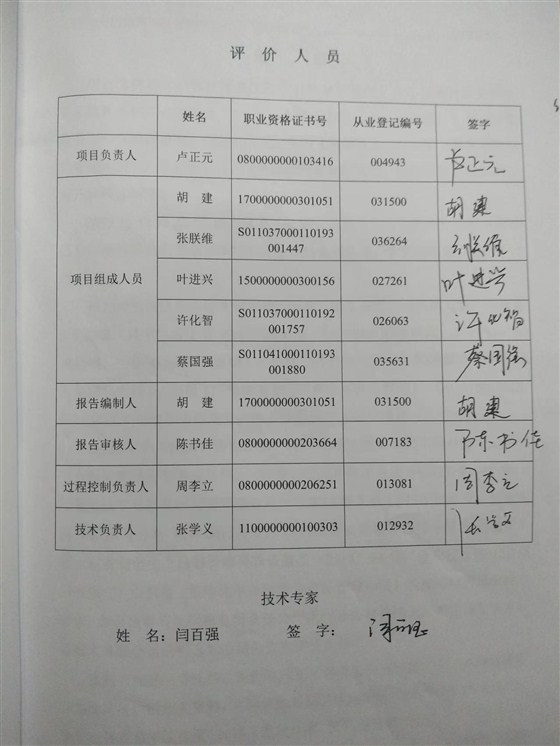 评价人员
姓名 职业资格证书号 从业登记编号 签字
项目负责人 卢正元 0800000000103416 004943 卢正元
项目组成人员 胡建 1700000000301051 031500 胡建
张朕维 S011037000110193001447 036264 张朕维
叶进兴 1500000000300156 027261 叶进兴
许化智 S011037000110192001757 026063 许化智
蔡国强 S011041000110193001880 035631 蔡国强
报告编制人 胡建 1700000000301051 031500 胡建
报告审核人 陈书佳 0800000000203664 007183 陈书佳
过程控制负责人 周李立 0800000000206251 013081 周李立
技术负责人 张学义 1100000000100303 012932 张学义
技术专家
姓名：闫百强 签字：